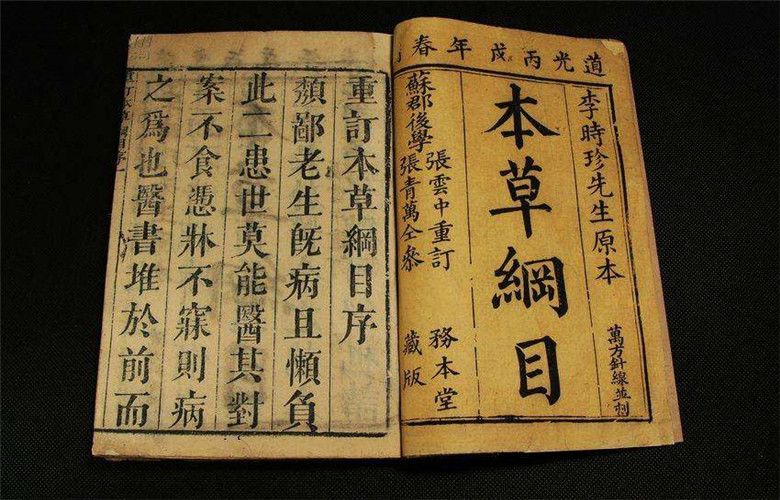 道光丙戌年春
李時珍先生原本
萬方針線並刊
本草綱目
蘇郡後學
張雲中重訂
張青萬仝參
務本堂
藏版
重訂本草綱目序
頹鄙老生旣病且懶負
此二患世莫能醫其對
案不食憑牀不寐則病
之爲也醫書堆於前而